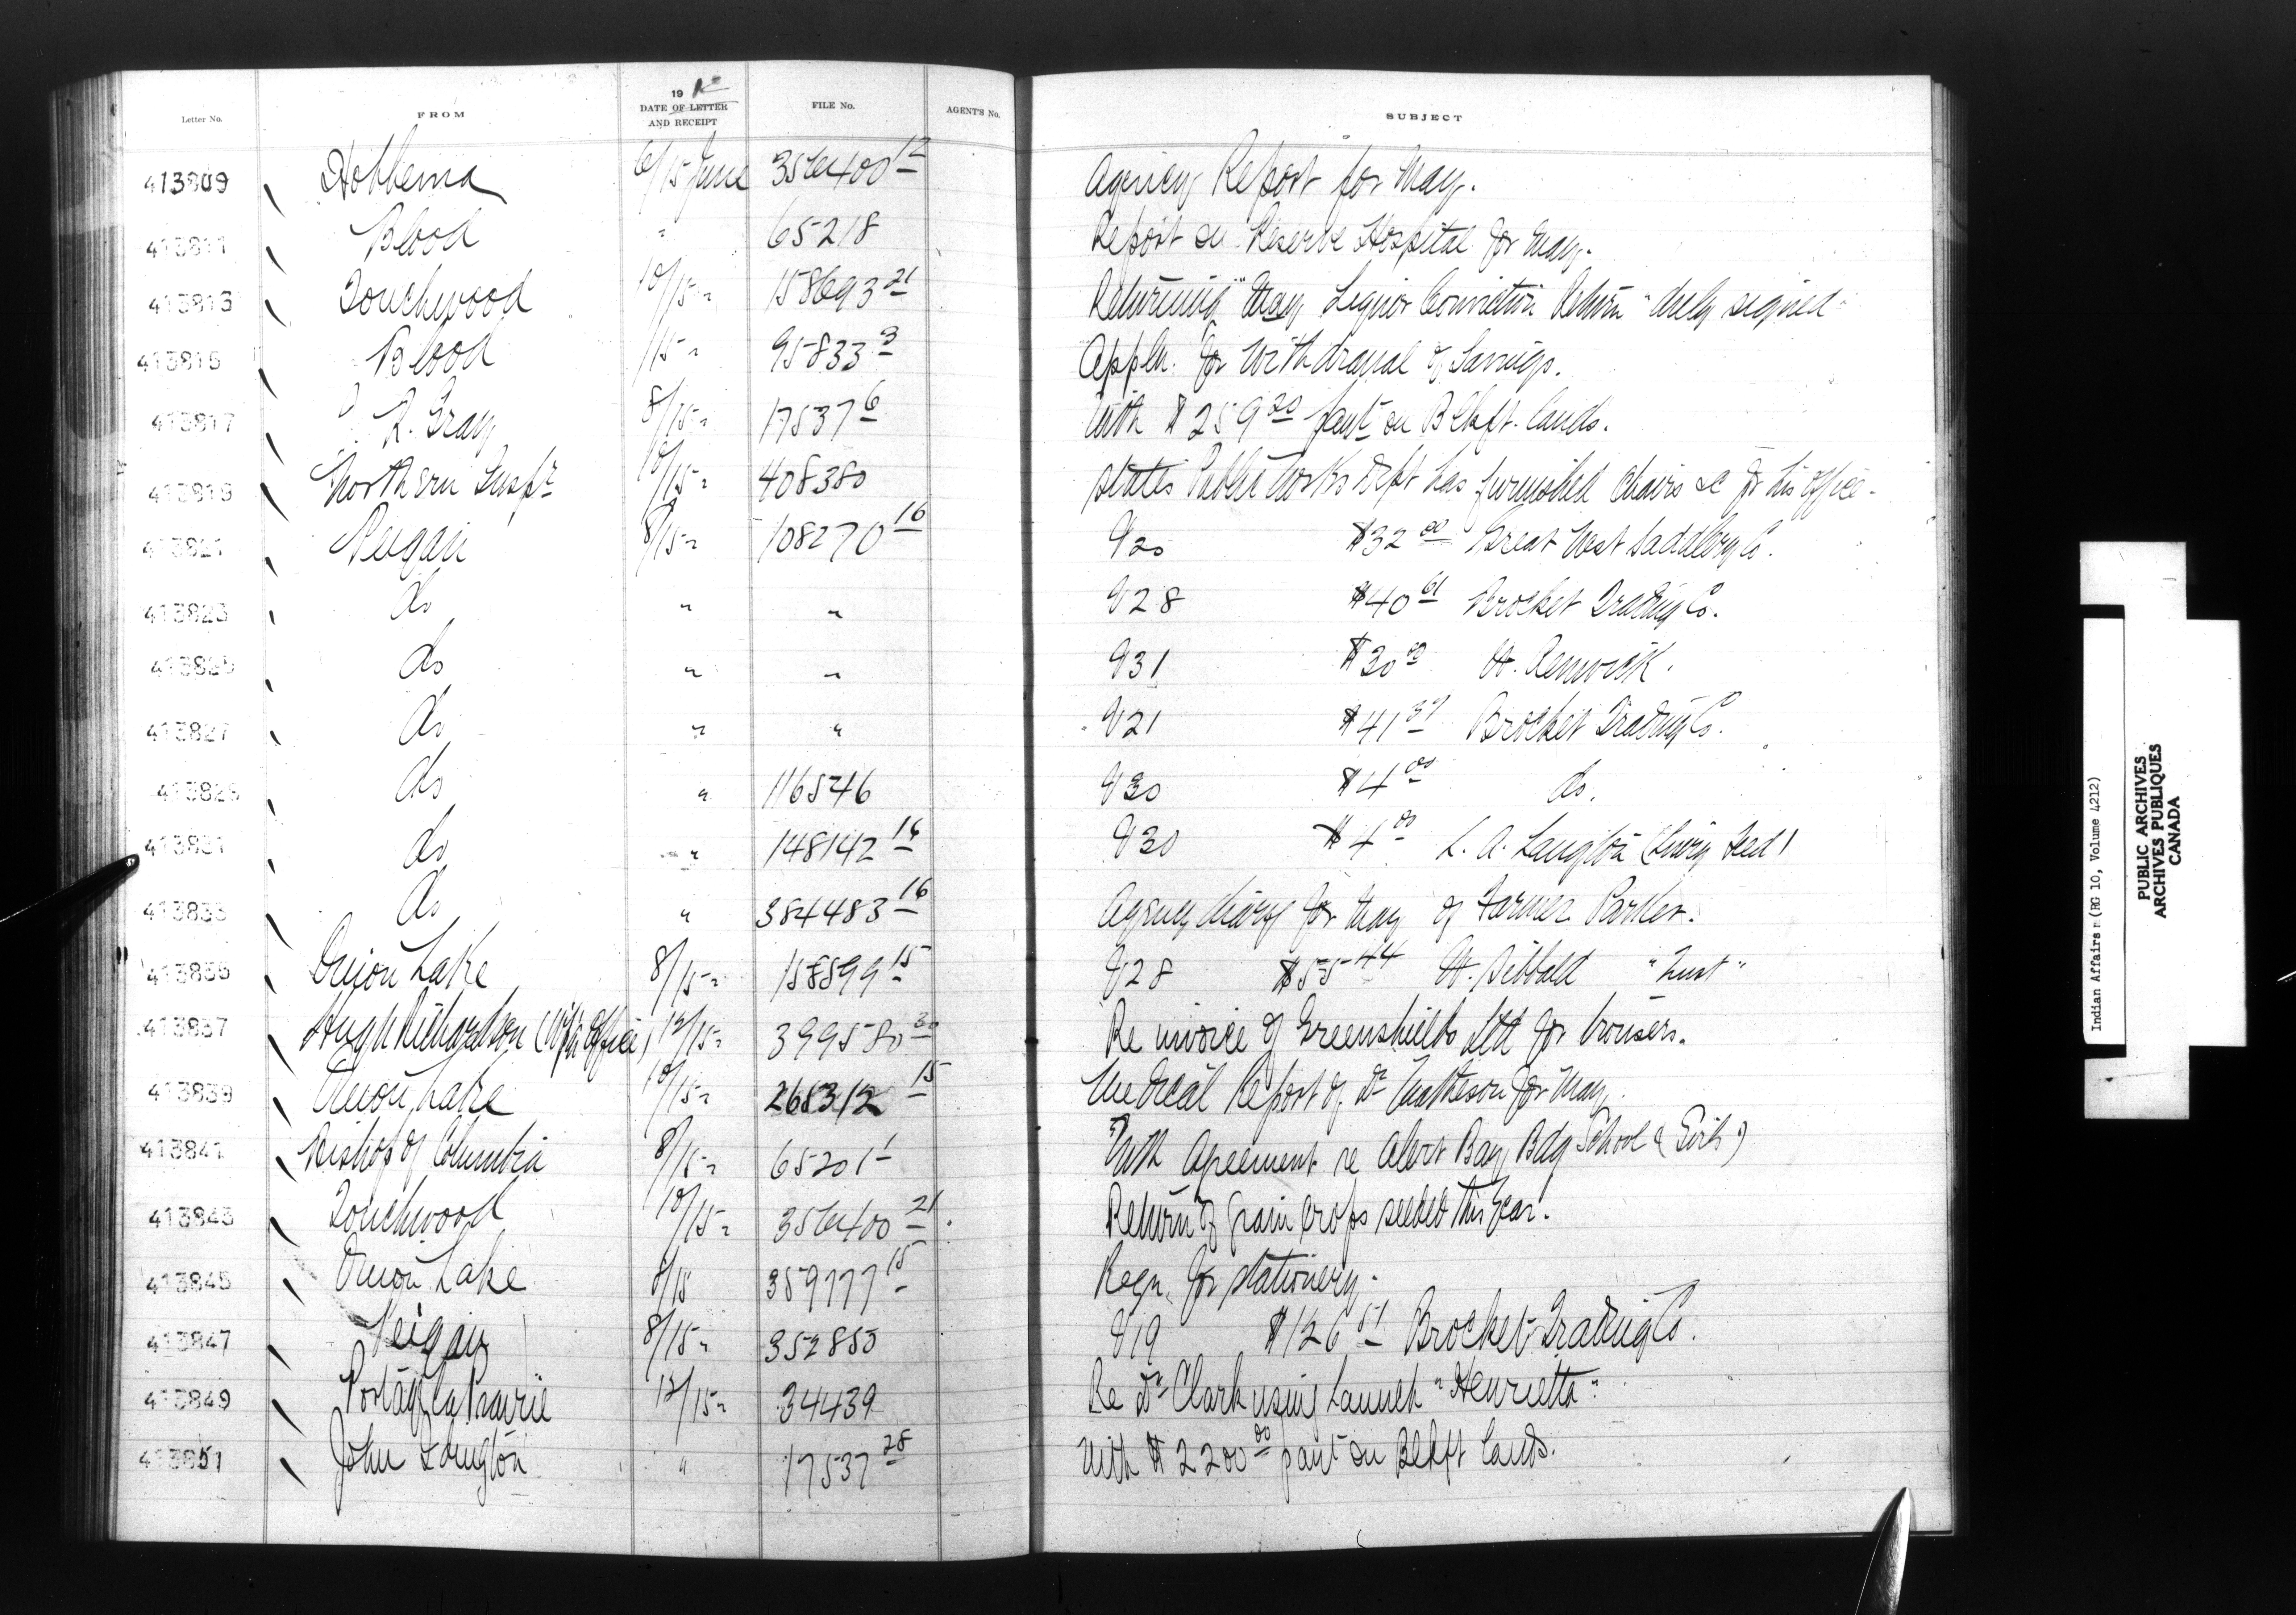 Letter No. FROM 19 12 DATE OF LETTER AND RECEIPT FILE No. AGENT'S No. SUBJECT
413809 Hobbema 6/15 June 356400 12 Agency Report for May.
413811 Blood " 65218 Report on Reserve Hospital for May.
413813 Touchwood 10/15 " 158693 21 Returning "May Liquor Conviction Return" duly signed
413815 Blood /15 " 95833 3 Appln. for withdrawal of Savings.
413817 R. Gray 8/15 " 17537 6 With $259 20 paut on Blkft. lands.
413819 Northern Inspr 10/15 " 408380 States Public Works Dept has furnished chairs &c for his office.
413821 Peigan 8/15 " 108270 16 V20 $32 00 Great West Saddlery Co.
413823 do " " V28 $40 61 Brocket Trading Co.
413825 do " " V31 $30 H. Renwick.
413827 do " " V21 $41 Brocket Trading Co.
413829 do " 116546 V30 $4 00 do.
413831 do " 148142 16 V30 $4 00 L. A. Langton
413833 do " 384483 16 Agency diary for May of Farmer Parker.
413835 Onion Lake 8/15 " 158599 15 V28 $55 44 H. Sibbald
413837 Hugh Richardson (W'p'g Office) 12/15 " 399580 30 Re invoice of Greenshields Ltd for trousers.
413839 Onion Lake 10/15 " 268312 15 Medical Report of Dr Matheson for May.
413841 Bishop of Columbia 8/15 " 65201 1 With Agreement re Alert Bay Bdg School (Girls)
413843 Touchwood 10/15 " 356400 21 Return of grain crops seeded this year.
413845 Onion Lake 8/15 359777 15 Reqn. for stationery.
413847 Peigan 8/15 " 352855 V19 $126 51 Brocket Trading Co.
413849 Portage la Prairie 12/15 " 34439 Re Dr Clark using Launch "Henrietta".
413851 John Longton " 17537 28 With $2200 00 paut on Blkft lands.
Indian Affairs (RG 10, Volume 4212)
PUBLIC ARCHIVES
ARCHIVES PUBLIQUES
CANADA